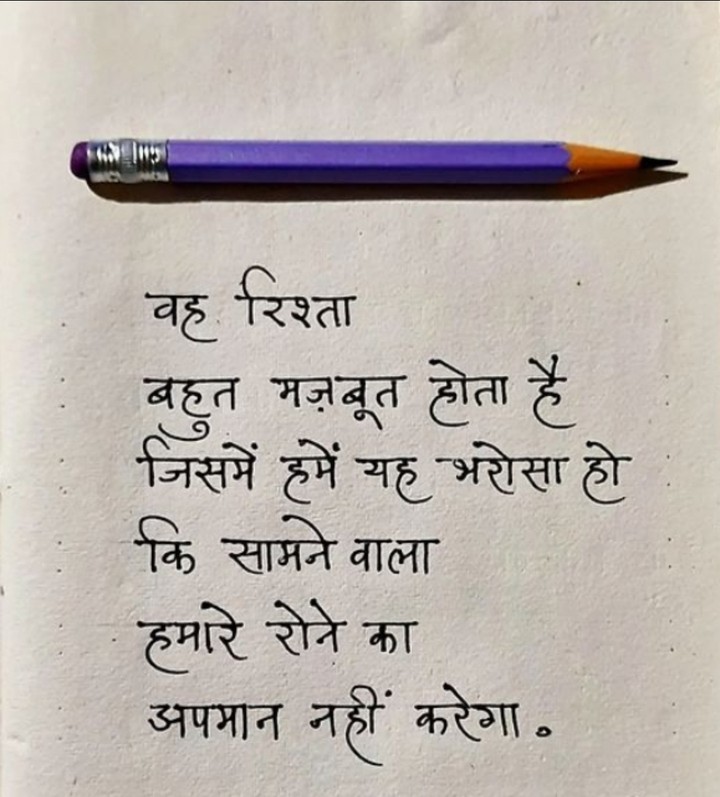 वह रिश्ता
बहुत मज़बूत होता है
जिसमें हमें यह भरोसा हो
कि सामने वाला
हमारे रोने का
अपमान नहीं करेगा.